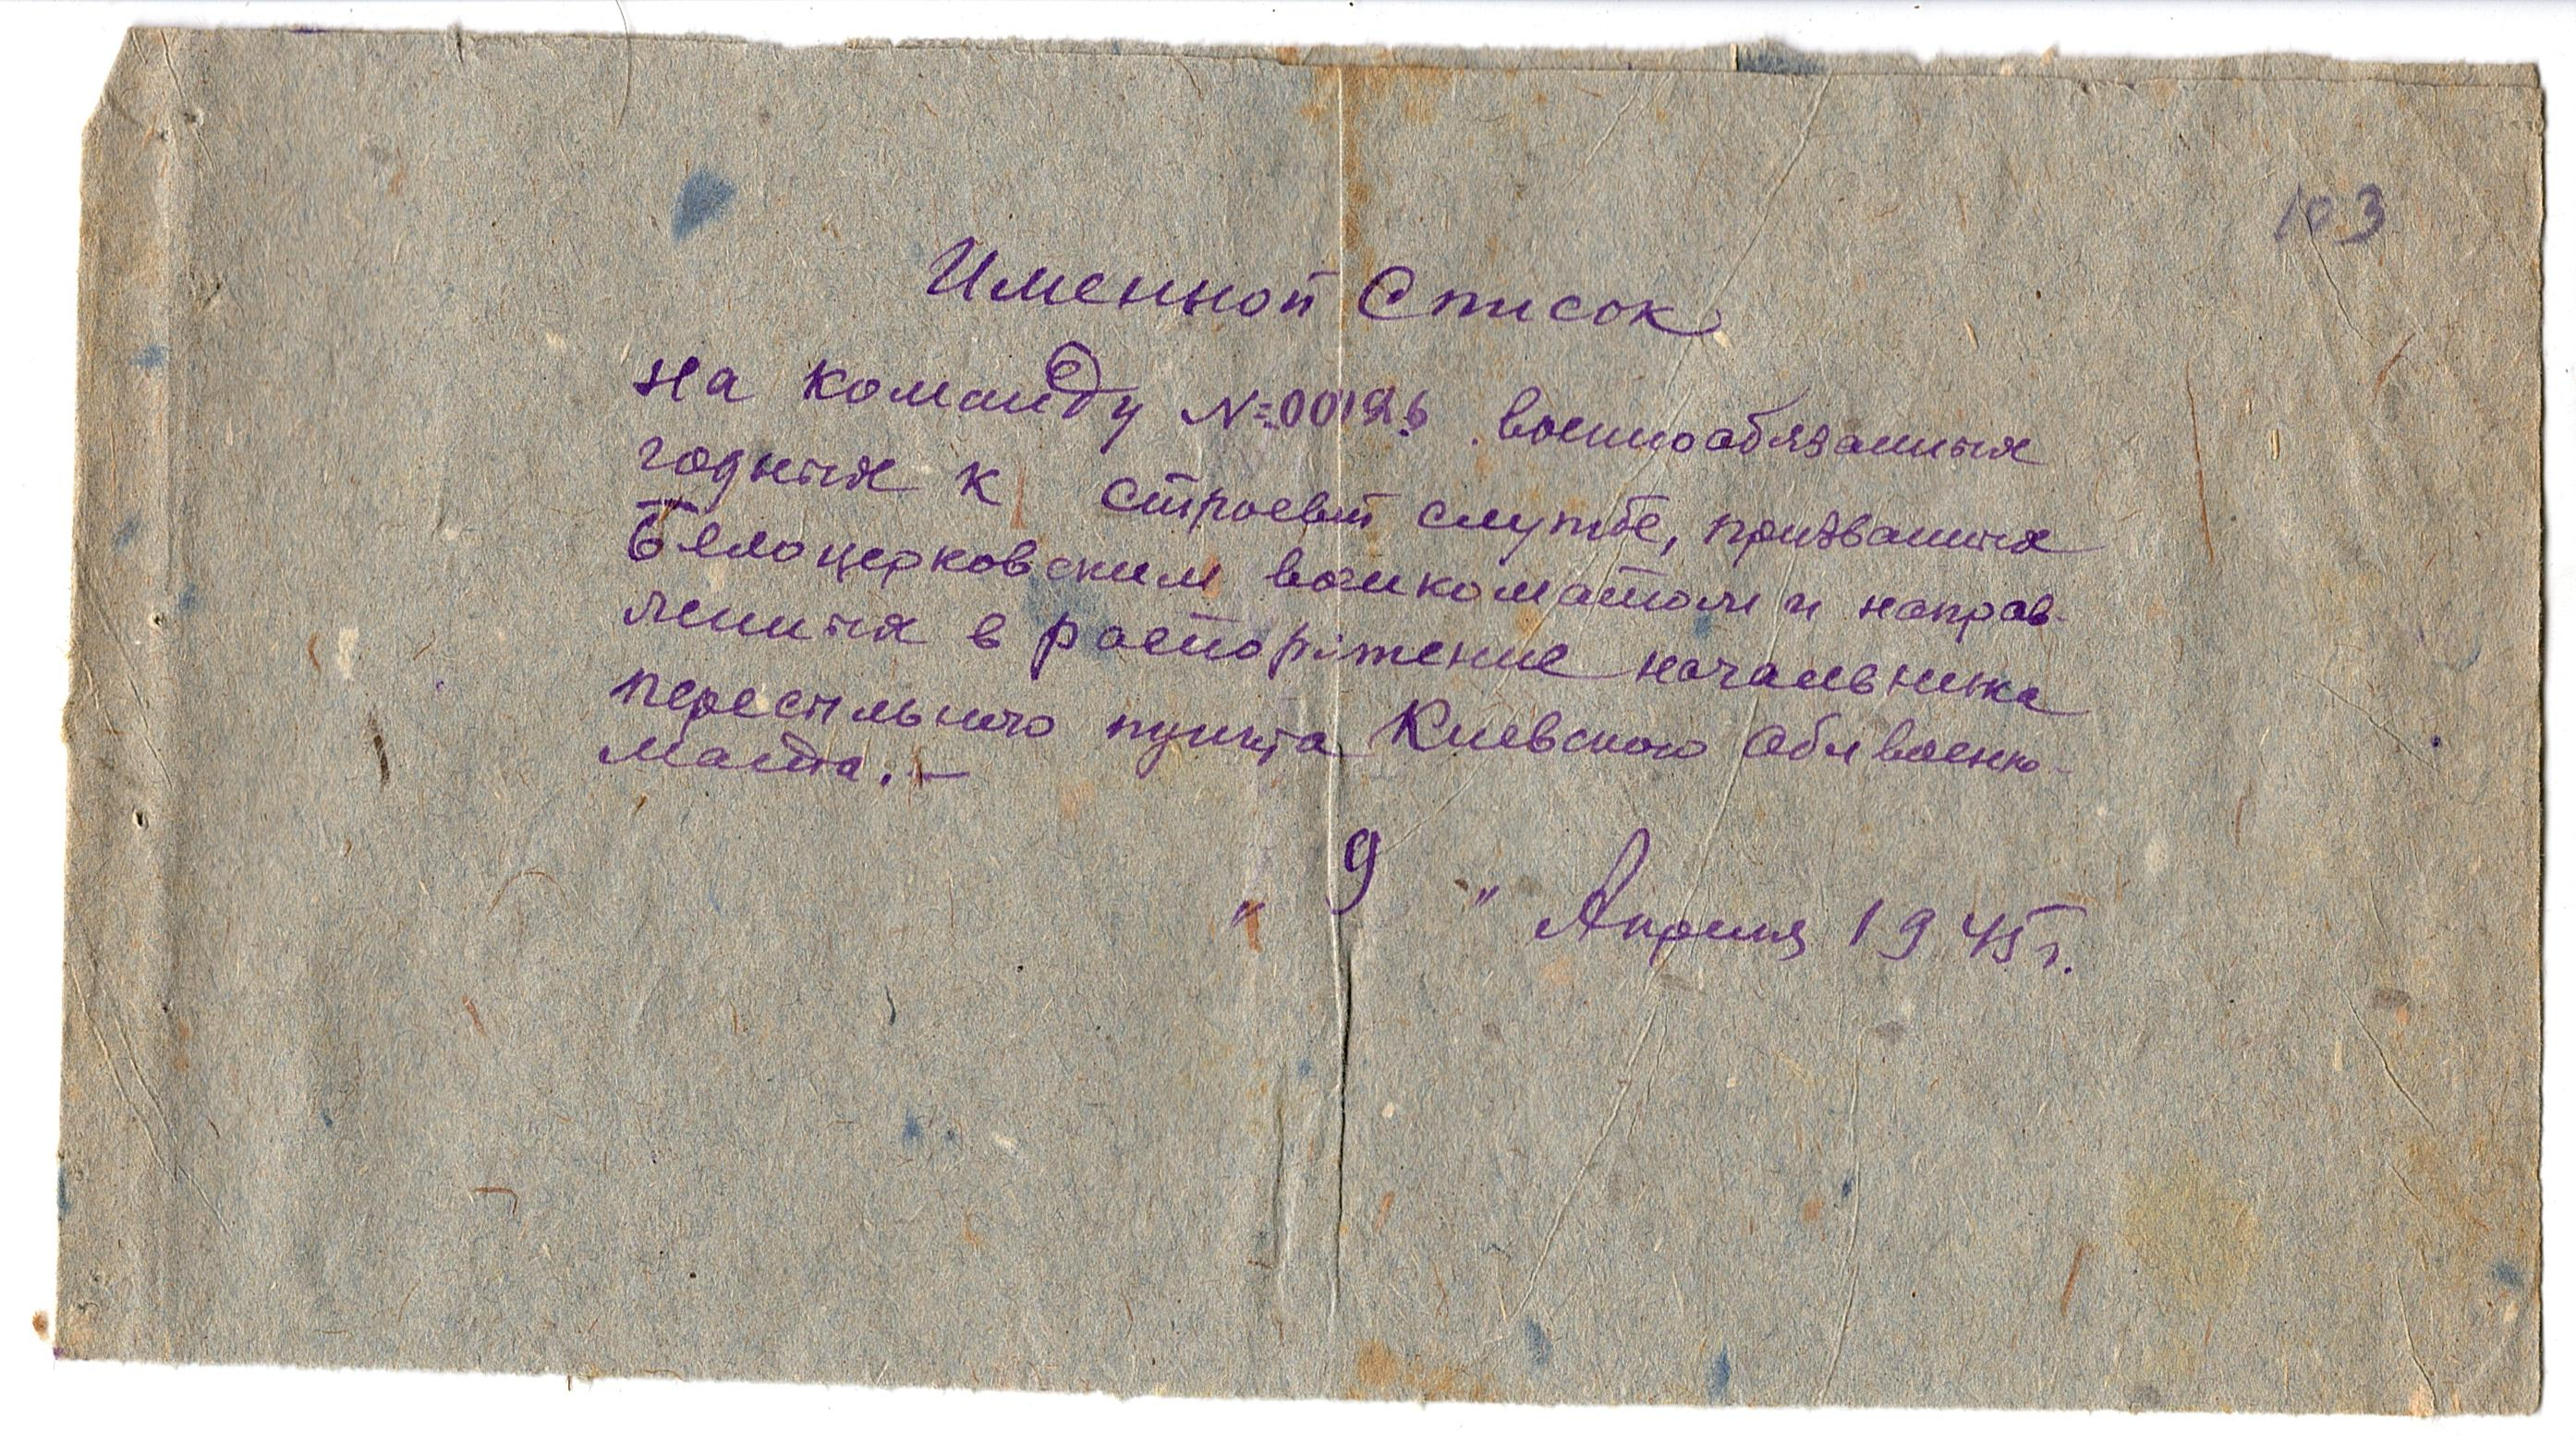 103
Именной Список
на команду военнообязанных
годных к строевой службе, призванных
Белоцерковским военкоматом и направ-
ленных в распоряжение начальника
пересыльного пункта Киевского облвоенко-
мата. –
" 9 " Апреля 1945 г.